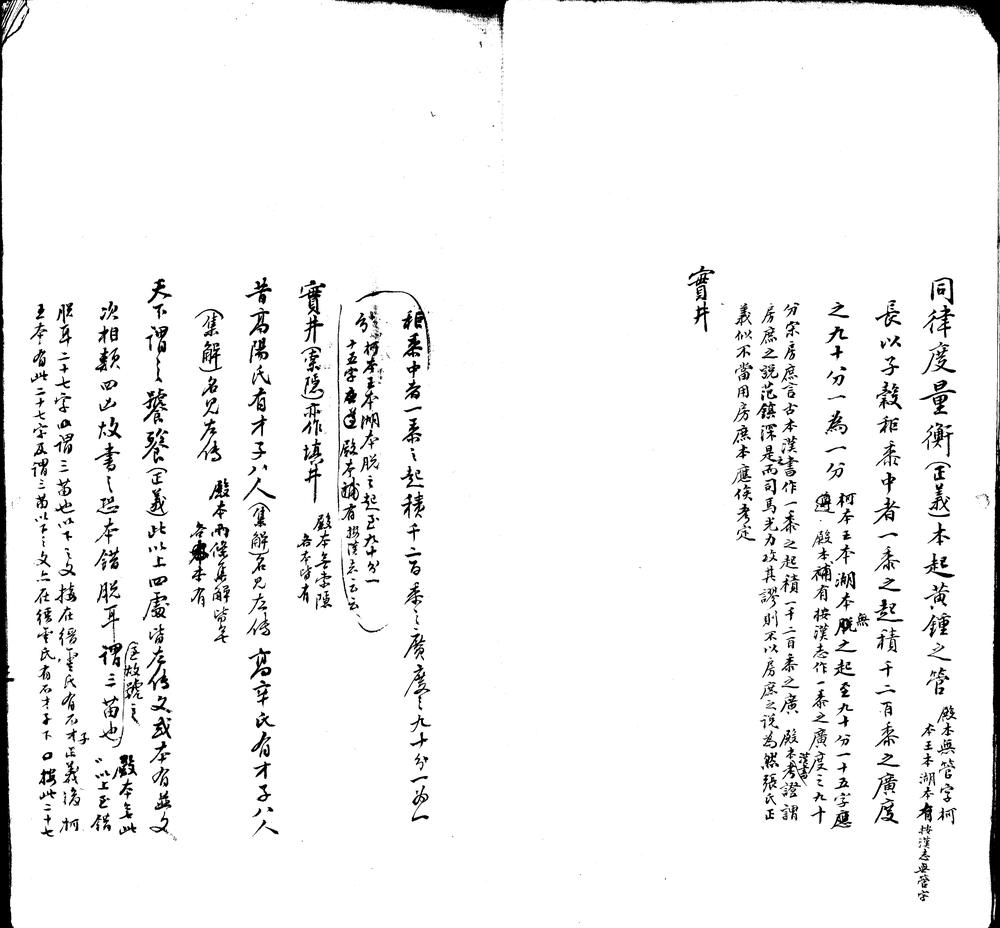 同律度量衡(正義)本起黃鍾之管
殿本無管字柯
本王本湖本有按漢志無管字
長以子穀秬黍中者一黍之起積千二百黍之廣度
之九十分一為一分
柯本王本湖本無脫之起至九十分一十五字應
遵殿本補有按漢志作一黍之廣度之九十
分宗房庶言古本漢書作一黍之起積一千二百黍之廣殿本漢書考證謂
房庶之說范鎮深是之而司馬光力攻其謬則不以房庶之說為然張氏正
義似不當用房庶本應俟考定
實井
秬黍中者一黍之起積千二百黍之廣度之九十分一為一
分
柯本王本湖本脫之起至九十分一
十五字應遵殿本補有按漢志云云
實井(索隱)亦作填井
殿本無索隱
各本皆有
昔高陽氏有才子八人(集解)名見左傳高辛氏有才子八人
(集解)名見左傳
殿本兩條集解皆無
各本有
天下謂之饕餮(正義)此以上四處皆左傳文或本有並文
次相類四凶故書之恐本錯脫耳謂三苗也
匡故號之
殿本無此
以上至錯
脫耳二十七字四謂三苗也以下之文接在縉雲氏有不才子正義後柯
王本有此二十七字及謂三苗以下之文亦在縉雲氏有不才子下〇按此二十七